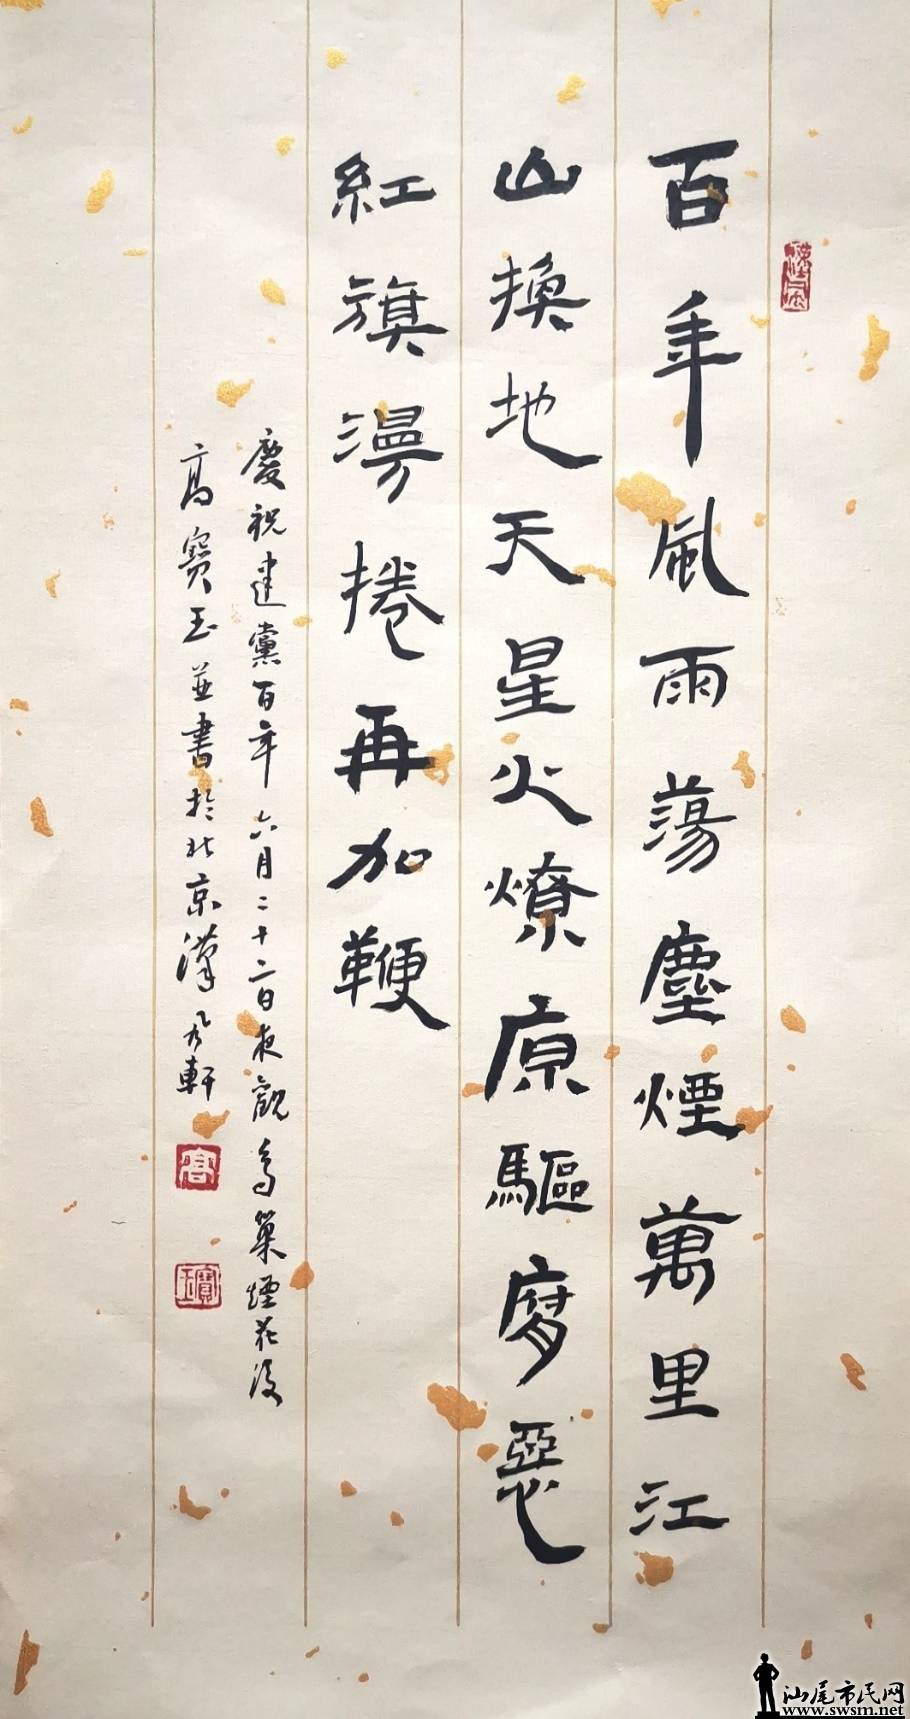 百年風雨蕩塵煙萬里江
山換地天星火燎原驅腐惡
紅旗漫捲再加鞭
慶祝建黨百年六月二十二日夜觀鳥巢煙花後
高寶玉並書於北京漢風軒
高
寶玉
汕尾市民网
www.swsm.net